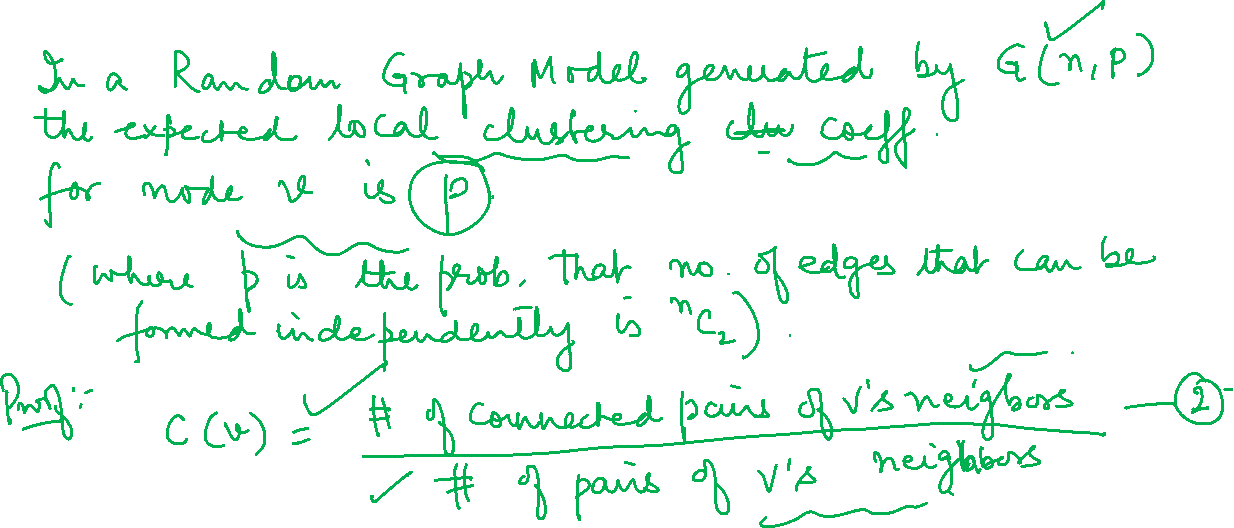 In a Random Graph Model generated by G(n,p)
the expected local clustering clu coeff.
for node v is p
(where p is the prob. that no. of edges that can be
formed independently is ⁿC₂).
Proof:- C(v) = # of connected pairs of v's neigbors — ②
# of pairs of v's neighbors